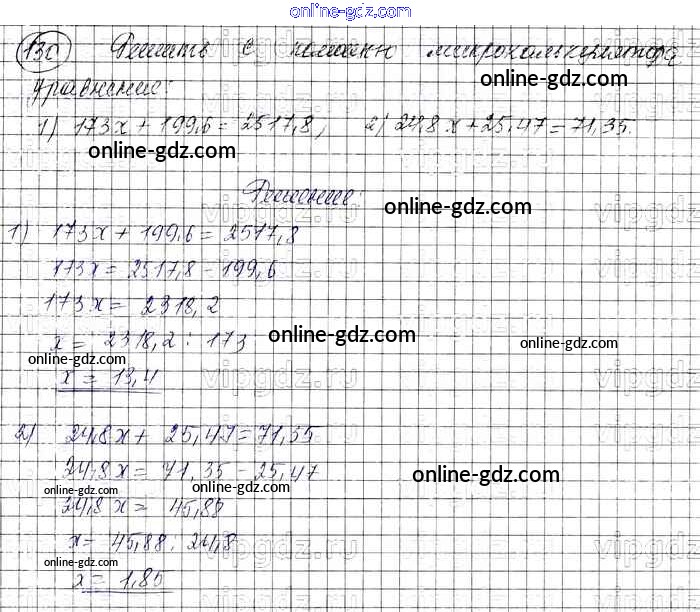 online-gdz.com
130 Решить с помощью микрокалькулятора
online-gdz.com
уравнение:
1) 173x + 199,6 = 2517,8, 2) 24,8x + 25,47 = 71,35.
online-gdz.com
vipgdz.ru
Решение:
online-gdz.com
1) 173x + 199,6 = 2517,8
173x = 2517,8 - 199,6
173x = 2318,2
online-gdz.com
x = 2318,2 : 173
online-gdz.com
online-gdz.com
x = 13,4
vipgdz.ru
2) 24,8x + 25,47 = 71,35
24,8x = 71,35 - 25,47
online-gdz.com
online-gdz.com
online-gdz.com
24,8x = 45,88
x = 45,88 : 24,8
vipgdz.ru
online-gdz.com
x = 1,85